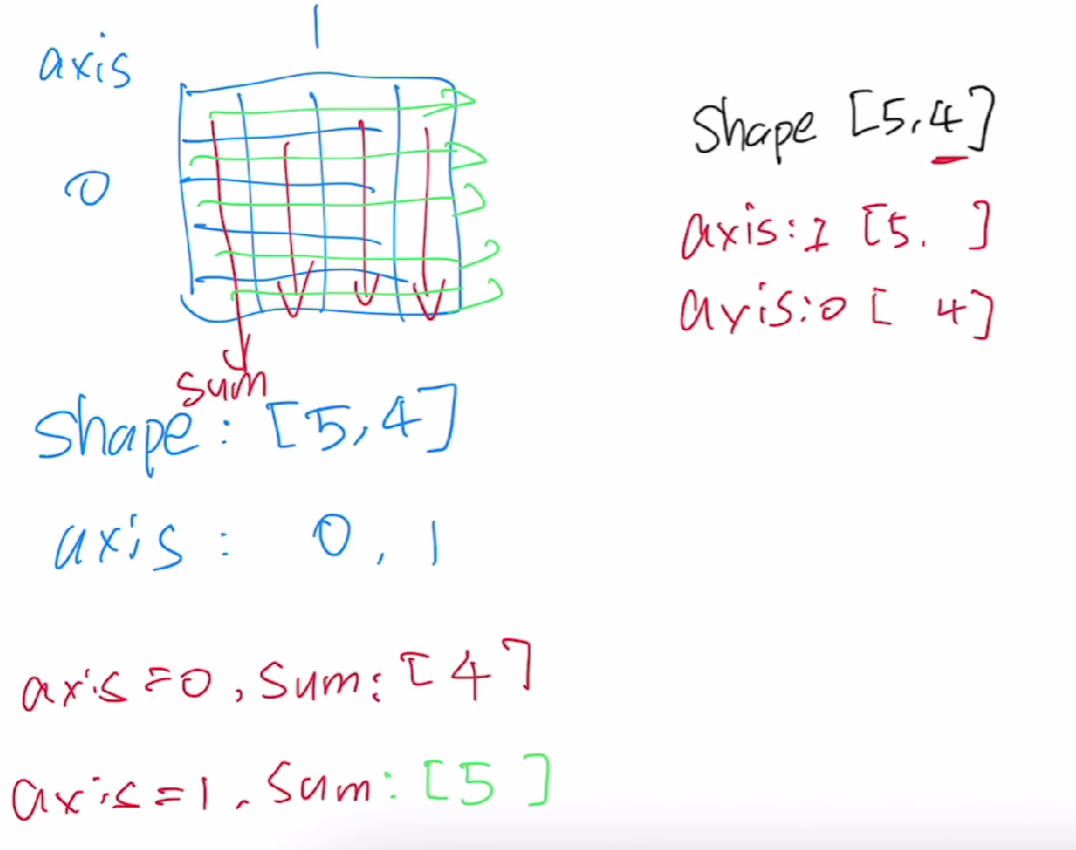 1
axis
0
sum
shape: [5,4]
axis: 0, 1
axis=0, sum: [4]
axis=1, sum: [5]
Shape [5,4]
axis:1 [5, ]
axis:0 [ 4]